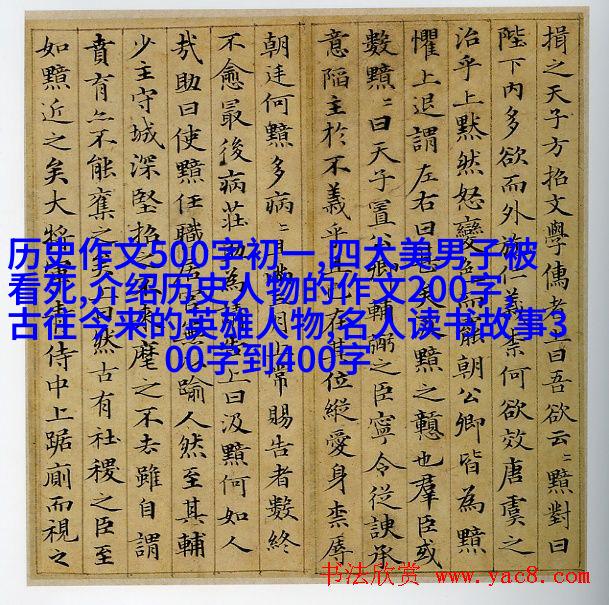 損之天子方招文學儒者上曰吾欲云〻黯對曰
陛下內多欲而外施仁義柰何欲效唐虞之
治乎上默然怒變色而罷朝公卿皆為黯
懼上退謂左右曰甚矣黯之戇也羣臣或
數黯〻曰天子置公卿輔弼之臣寧令從諛承
意陷主於不義乎且已在其位縱愛身柰辱
朝廷何黯多病〻且滿三月上常賜告者數終
不愈最後病莊助為請告上曰汲黯何如人
哉助曰使黯任職居官無以踰人然至其輔
少主守城深堅招之不來麾之不去雖自謂
賁育亦不能奪之矣上曰然古有社稷之臣至
如黯近之矣大將軍青侍中上踞廁而視之
历史作文500字初一,四大美男子被
看死,介绍历史人物的作文200字,
古往今来的英雄人物,名人读书故事3
00字到400字
书法欣赏 www.yac8.com